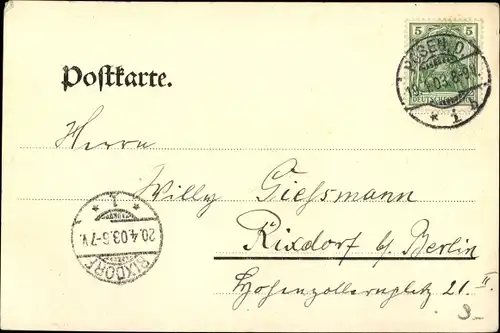 5 5
POSEN O.
19.4.03.8-9N.
DEUTSCHES
* 1 b
Postkarte.
Herrn
Willy Giessmann
Rixdorf b/ Berlin
Hohenzollernplatz 21. II
* 1 *
20.4.03.6-7V.
RIXDORF